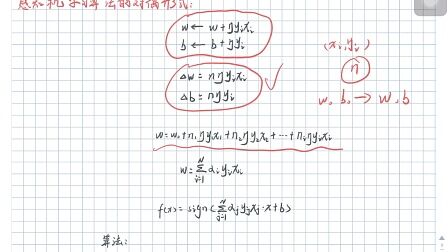 感知机学习算法的对偶形式:
w ← w + ηyᵢxᵢ
b ← b + ηyᵢ
(xᵢ, yᵢ)
n
Δw = nηyᵢxᵢ
Δb = nηyᵢ
w₀ b₀ → w, b
w = w₀ + n₁ηy₁x₁ + n₂ηy₂x₂ + ⋯ + nᵢηyᵢxᵢ
w = Σᵢ₌₁ᴺ αᵢyᵢxᵢ
f(x) = sign(Σⱼ₌₁ᴺ αⱼyⱼxⱼ·x + b)
算法: